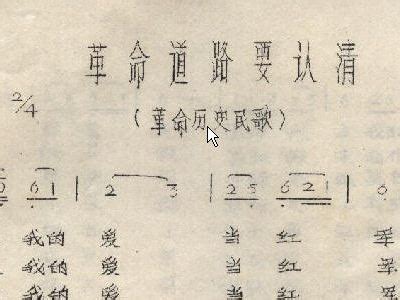 革命道路要认清
2/4
（革命历史民歌）
0 6 1 | 2 3 | 2 5 6 2 1 | 6
我的 爱 当 红 军
我的 爱 当 红 军
我的 爱 当 红 军